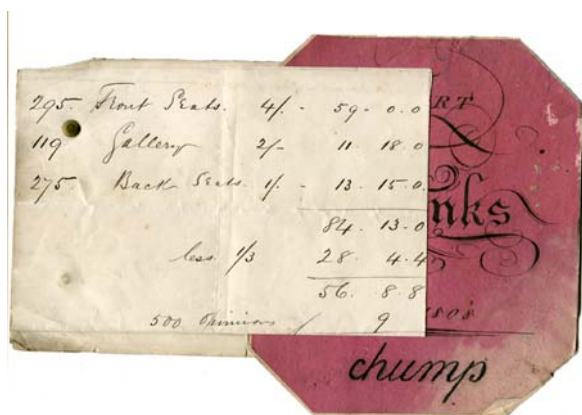 295. Front Seats. 4/. - 59 - 0.0
119 Gallery 2/- 11. 18.0
275. Back Seats. 1/. - 13. 15.0
84. 13.0
less 1/3 28. 4.4
56. 8.8
500 Opinions / 9
RT
nks
1808
chump